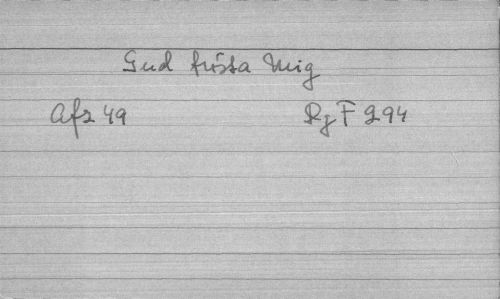 Gud trösta Mig
Afz 49 Rz F 294